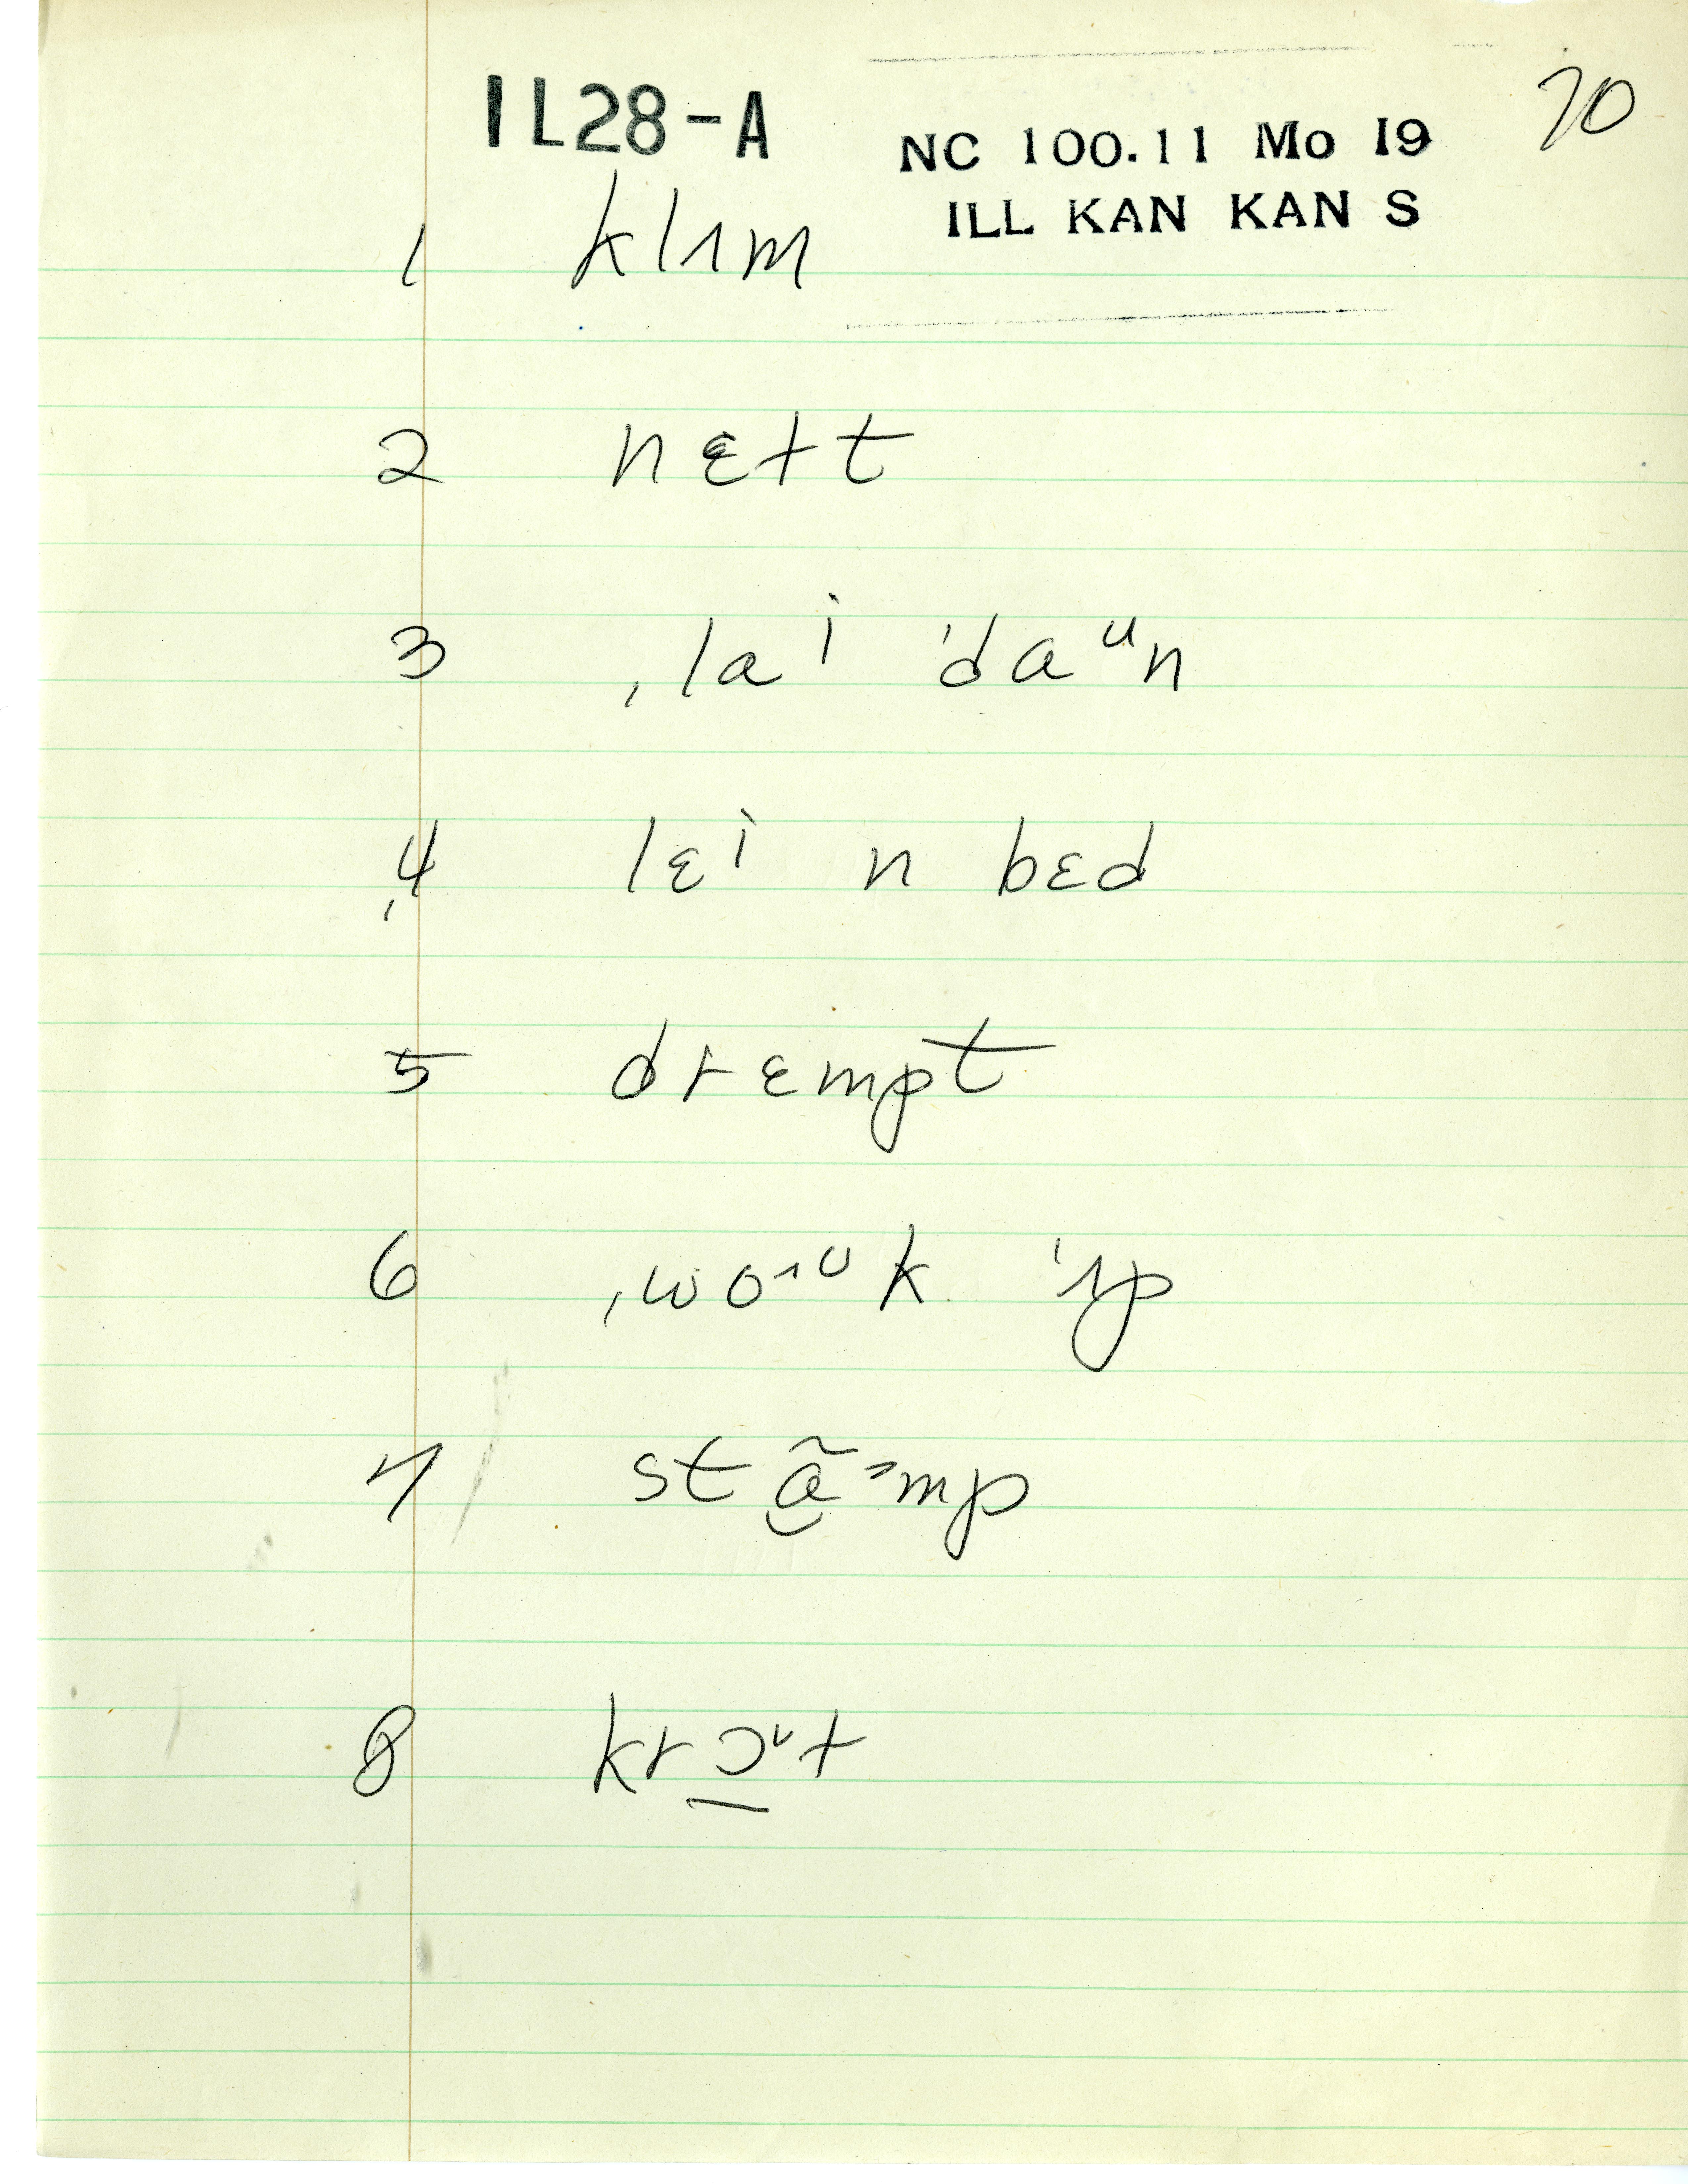 IL28-A
70
NC 100.11 Mo 19
ILL KAN KAN S
1 klɪm
2 nɛɫt
3 ˌlaⁱ ˈdaᵘn
4 ˌlɛⁱ n bɛd
5 drɛmpt
6 ˌwoˑᶺᶸk ˈʌp
7 stɑ̯̃ᵊmp
8 krɔ̠ᶸɫ